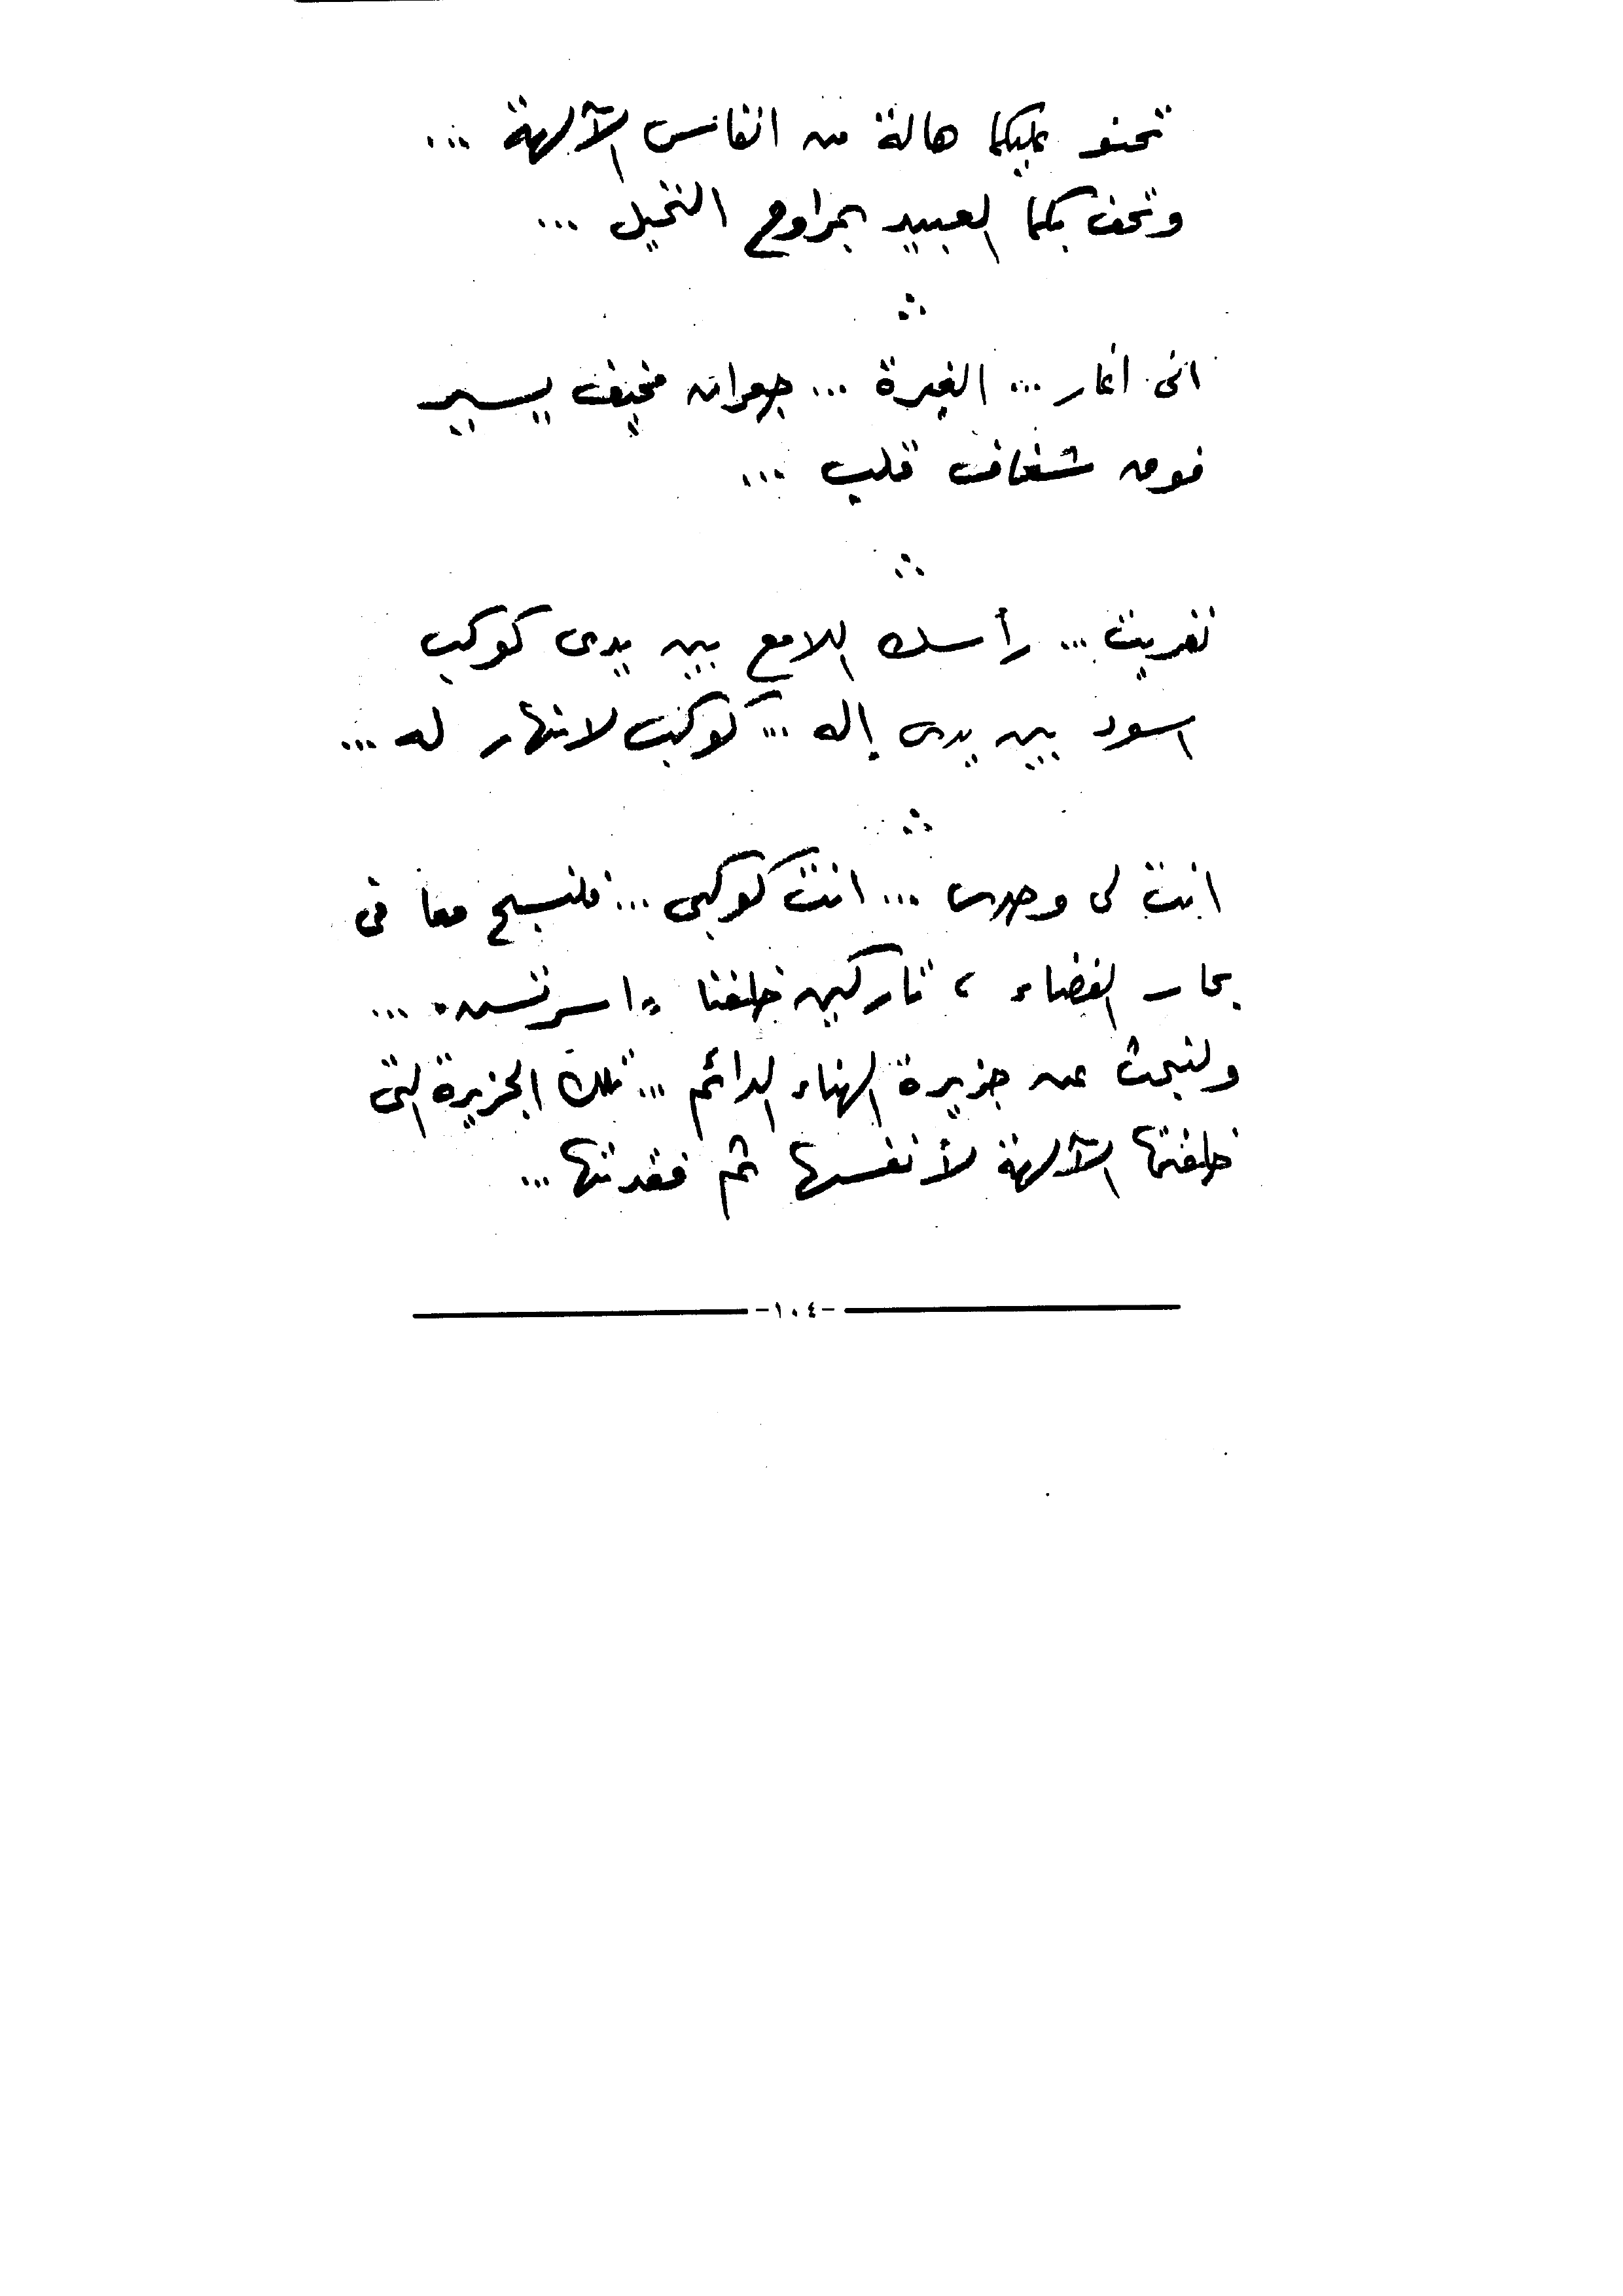 تحنو عليكما هالة من انفاس الآلهة ...
وتحف بكما العبيد بمراوح النخيل ...
انى أغار ... الغيرة ... جعران مخيف يسير
فوق شغاف قلب ...
نفريت ... رأسك اللامع بين يدى كوكب
اسود بين يدى إله ... كوكب لا نهار له ...
انت لى وحدى ... انت كوكبى ... فلنسبح معا فى
بحار الفضاء ، تاركين خلفنا
ولنبحث عن جزيرة الهناء الدائم ... تلك الجزيرة التى
خلقتها الآلهة لأنفسها ثم فقدتها ...
-١٠٤-